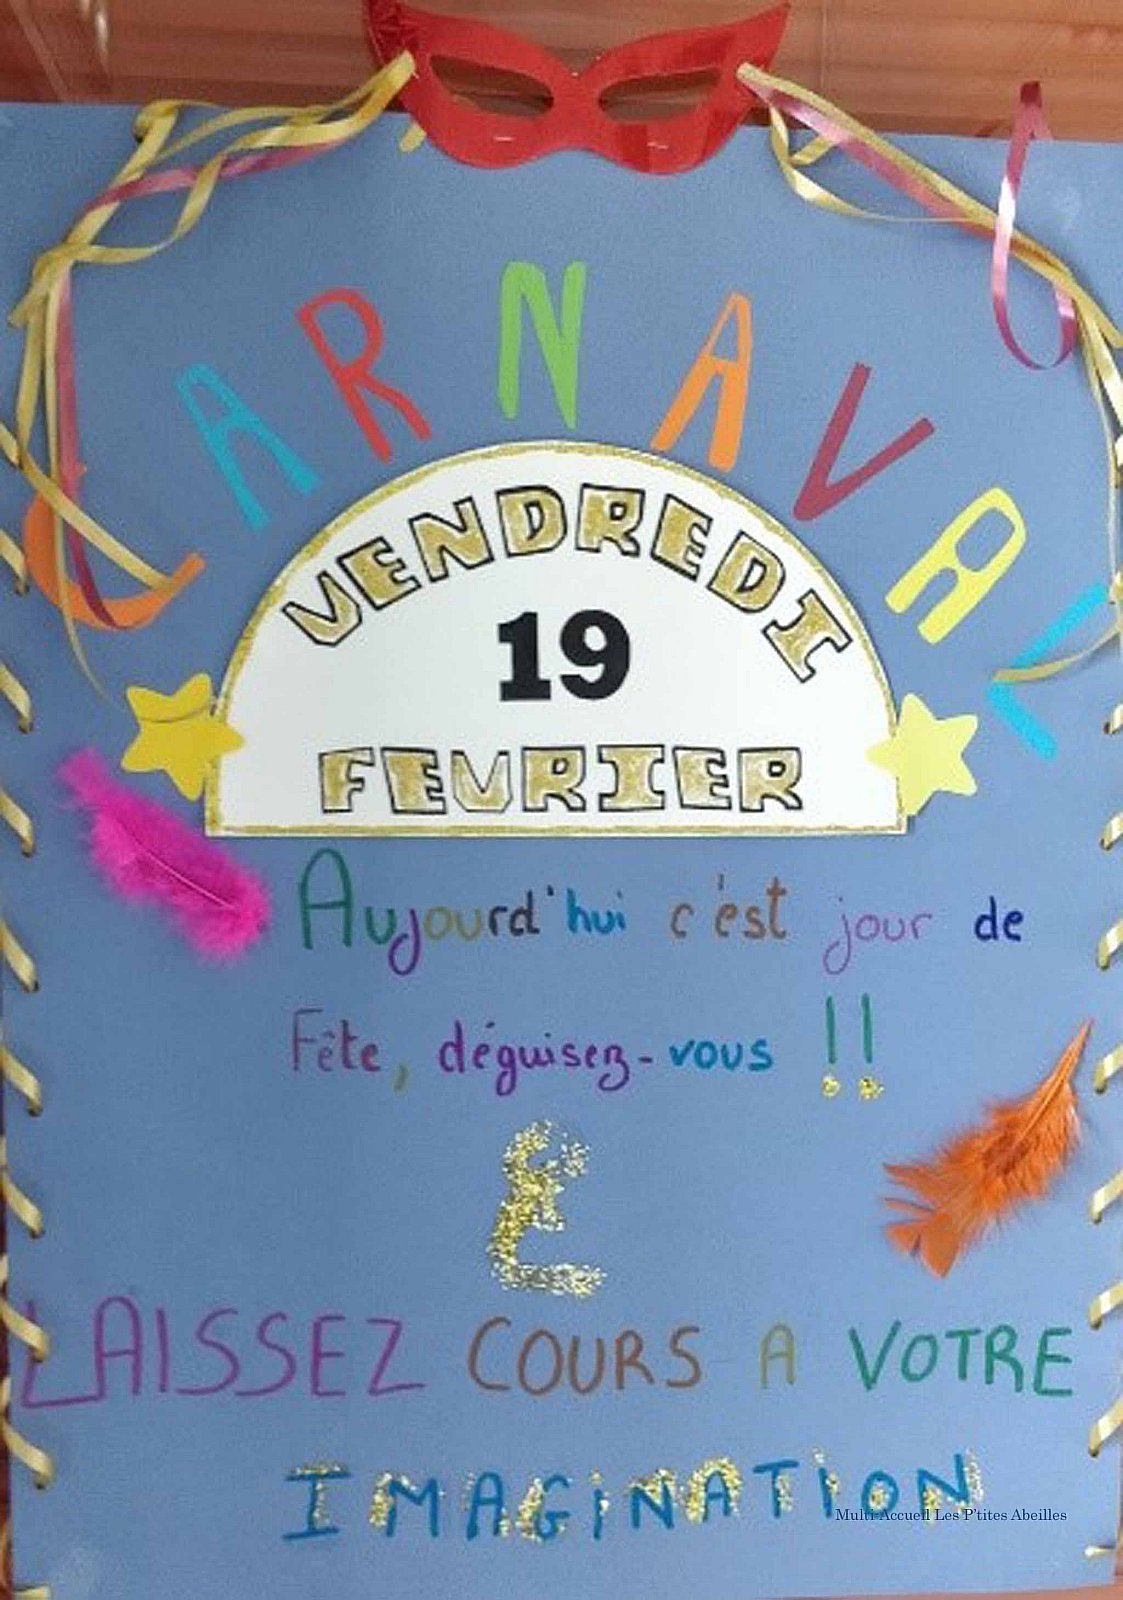 CARNAVAL
VENDREDI
19
FEVRIER
Aujourd'hui c'est jour de
Fête, déguisez-vous !!
&
LAISSEZ COURS A VOTRE
IMAGINATION
Multi-Accueil Les P'tites Abeilles